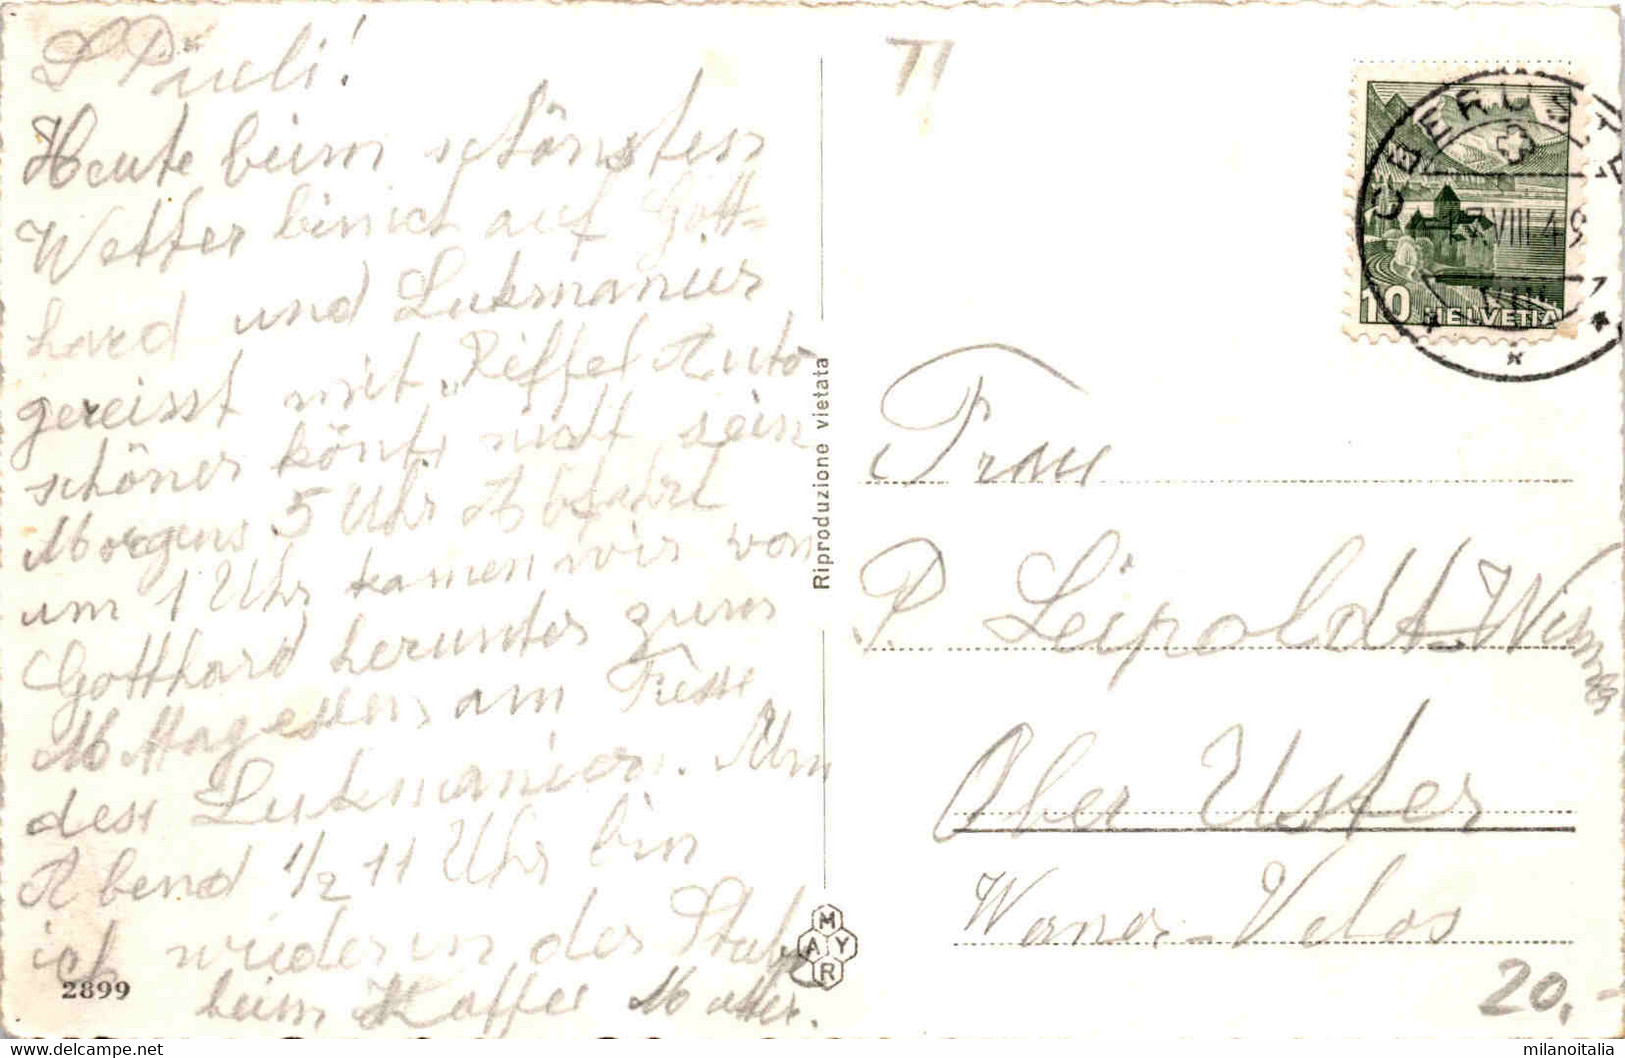 L Pauli!
Heute beim schönsten
Wetter bin ich auf Gott=
hard und Lukmanier
gereisst mit „Riffel Auto
schöner könte nicht sein
Morgens 5 Uhr Abfahrt
um 1 Uhr kamen wir von
Gotthard herunter zum
Mittagessen am Fusse
des Lukmanier. Um
Abend 1/2 11 Uhr bin
ich wieder in der Stube
beim Kaffee Mutter.
2899
Riproduzione vietata
MAYR
OBERUSTER
VIII 49
10 HELVETIA
Frau
P. Leipoldt-Wismer
Ober Uster
Werner-Velos
20,-
milanoitalia